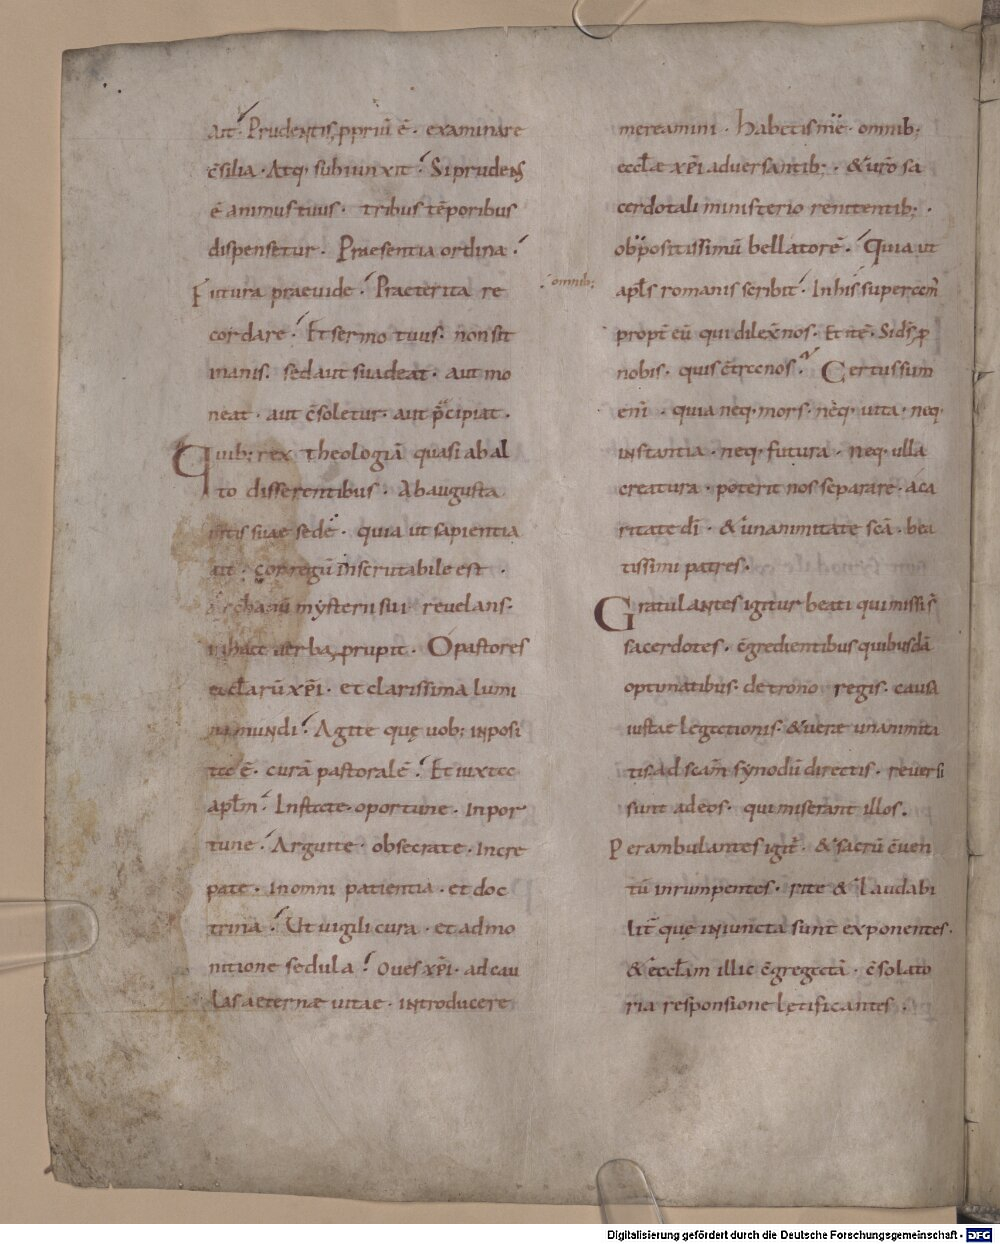 Ait. Prudentis ꝓpriũ ẽ. examinare
c̃silia. Atq; subiunxit. Si prudens
ẽ animus tuus. tribus tẽporibus
dispensetur. Praesentia ordina.
Futura praevide. Praeterita re
cordare. Et sermo tuus. non sit
inanis. sed aut suadeat. aut mo
neat. aut c̃soletur. aut p̃cipiat.
Quib; rex theologiã quasi ab al
to disserentibus. Ab augusta
suae sede. quia ut sapientia
ait. cor regũ inscrutabile est.
Archanũ mysterii sui revelans.
in haec verba ꝓrupit. O pastores
eccl̃arũ xp̃i. et clarissima lumi
na mundi. Agite quę vob; inposi
ta ẽ. curã pastoralẽ. Et iuxta
apl̃m. Instate oportune. Inpor
tune. Arguite. obsecrate. Incre
pate. In omni patientia. et doc
trina. Ut vigili cura. et admo
nitione sedula. Oves xp̃i. ad cau
las aeternae vitae. introducere
omnib;
mereamini. Habetis me. omnib;
eccl̃ae xp̃i adversantib;. & vr̃o sa
cerdotali ministerio renitentib;.
obpositissimũ bellatorẽ. Quia ut
apl̃s romanis scribit. In his supercem̃
propt̃ eũ qui dilex̃ nos. Et itẽ. Si dr̃ p
nobis. quis c̃tra nos. Certus sum
enĩ. quia neq; mors. neq; vita. neq;
instantia. neq; futura. neq; ulla
creatura. poterit nos separare. a ca
ritate dĩ. & unanimitate sc̃a. bea
tissimi patres.
Gratulantes igitur beati qui missi s̃
sacerdotes. c̃gredientibus quibusdã
optimatibus. de trono regis. causa
iustae legationis. & verae unanimita
tis. ad scam̃ synodũ directis. reversi
sunt ad eos. qui miserant illos.
Perambulantes igit̃. & sacrũ c̃ven
tũ inrumpentes. rite & laudabi
lit̃ quę iniuncta sunt exponentes.
& eccl̃am illic c̃gregatã. c̃solato
ria responsione lętificantes.
Digitalisierung gefördert durch die Deutsche Forschungsgemeinschaft - DFG